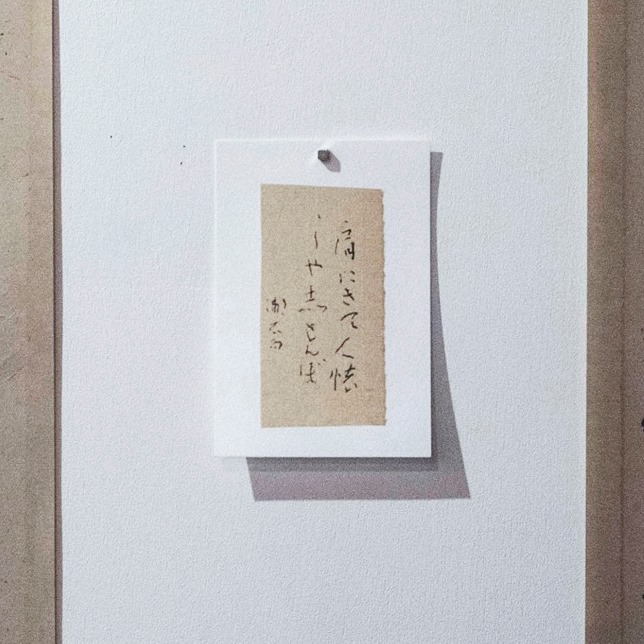 肩にきて人懐
かしや赤とんぼ
漱石